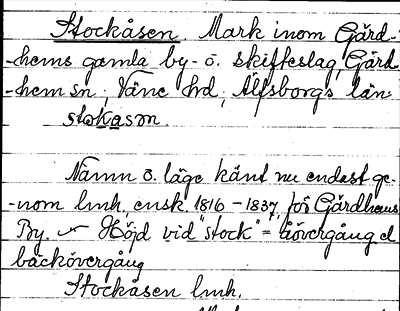 Stockåsen. Mark inom Gärd-
-hems gamla by- o. skifteslag, Gärd
-hem sn, Väne hd, Älfsborgs län.
stokasºn.
Namn o. läge känt nu endast ge-
-nom lmh. ensk. 1816-1837, för Gärdhems
By. Höjd vid "stock" = åövergång el
bäckövergång
Stockåsen lmh.